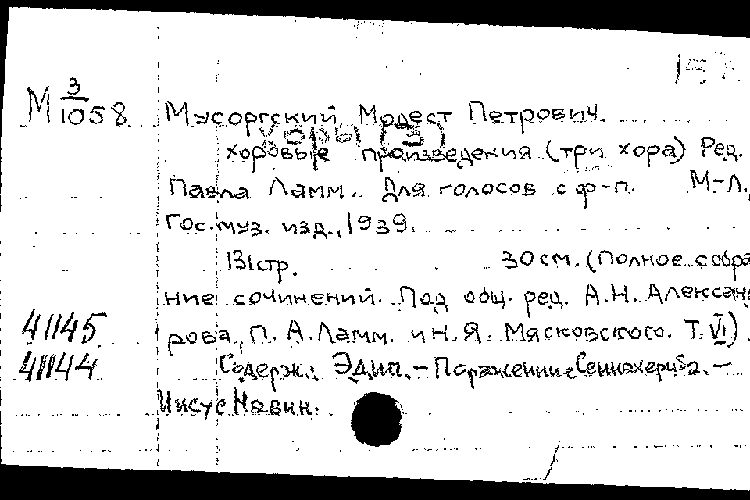 М 3/1058
Мусоргский, Модест Петрович.
Хоры (3)
хоровые произведения (три хора) Ред.
Павла Ламм. Для голосов с ф-п. М-Л.,
Гос. муз. изд., 1939.
131 стр. 30 см. (Полное собра
ние сочинений. Под общ. ред. А.Н. Александ
41145 рова, П. А. Ламм. и Н. Я. Мясковского. Т. VI).
41144 Содерж.: Эдип. – Поражение Сеннахериба. –
Иисус Навин.